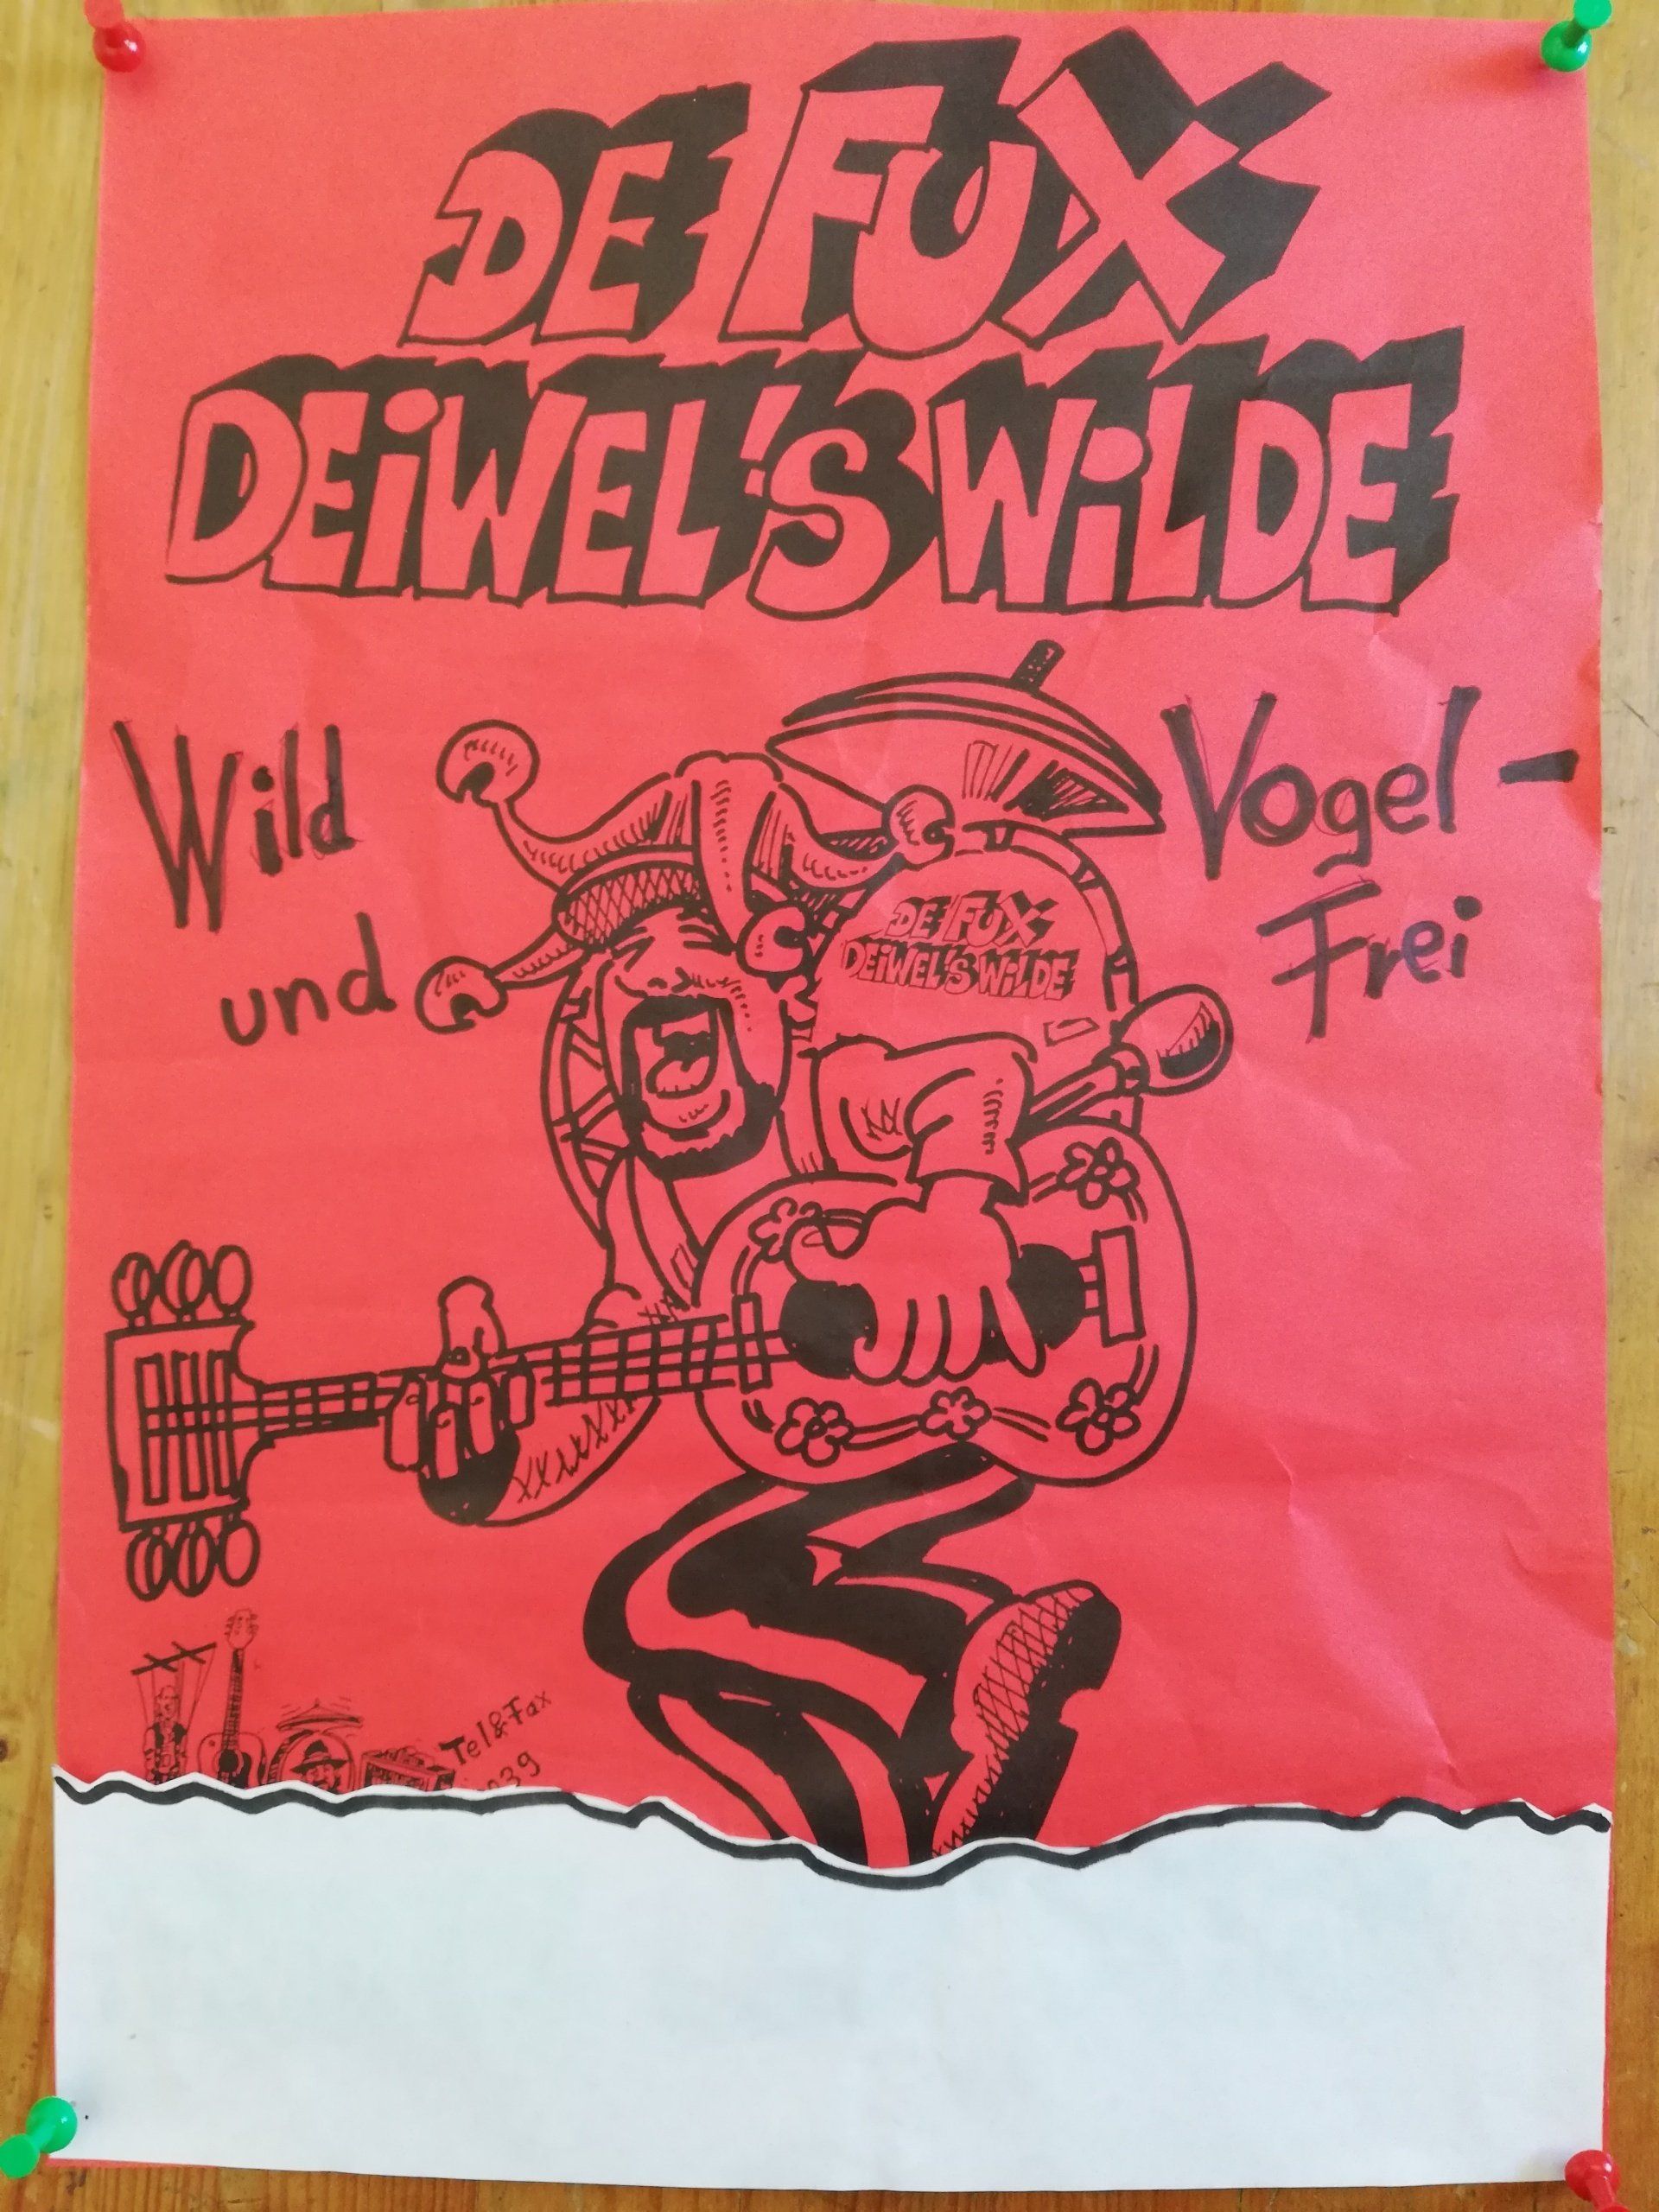 DE FUX
DEiWEL'S WiLDE
Wild
und
Vogel-
Frei
DE FUX
DEiWEL'S WiLDE
Tel&Fax